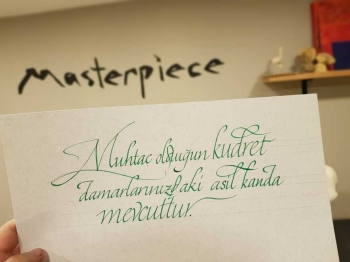 Masterpiece
Muhtac olduğun kudret
damarlarınızdaki asil kanda
mevcuttur.